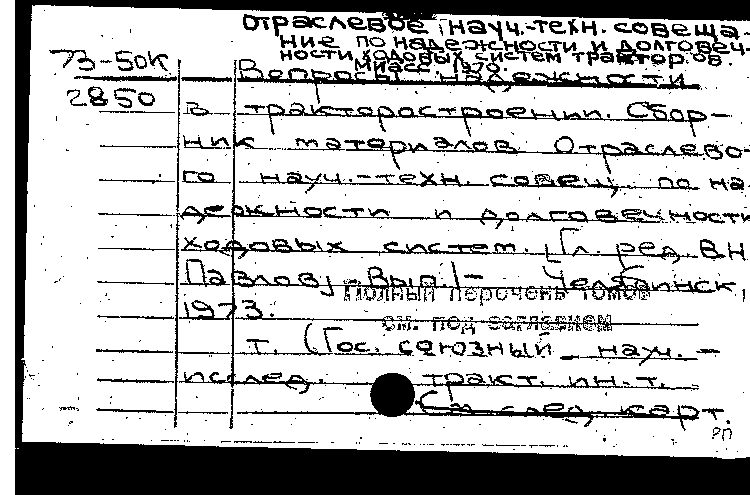 Отраслевое науч.-техн. совеща-
ние по надежности и долговеч-
ности ходовых систем тракторов.
Миасс, 1972
73-50К Вопросы надежности
2850 в тракторостроении. Сбор-
ник материалов Отраслево-
го науч.-техн. совещ. по на
дежности и долговечности
ходовых систем. [Гл. ред. В.Н
Павлов] Вып. 1- Челябинск,
Полный перечень томов
1973.
см. под заглавием
т. (Гос. союзный науч.-
исслед. тракт. ин-т.
См след. карт.
РП